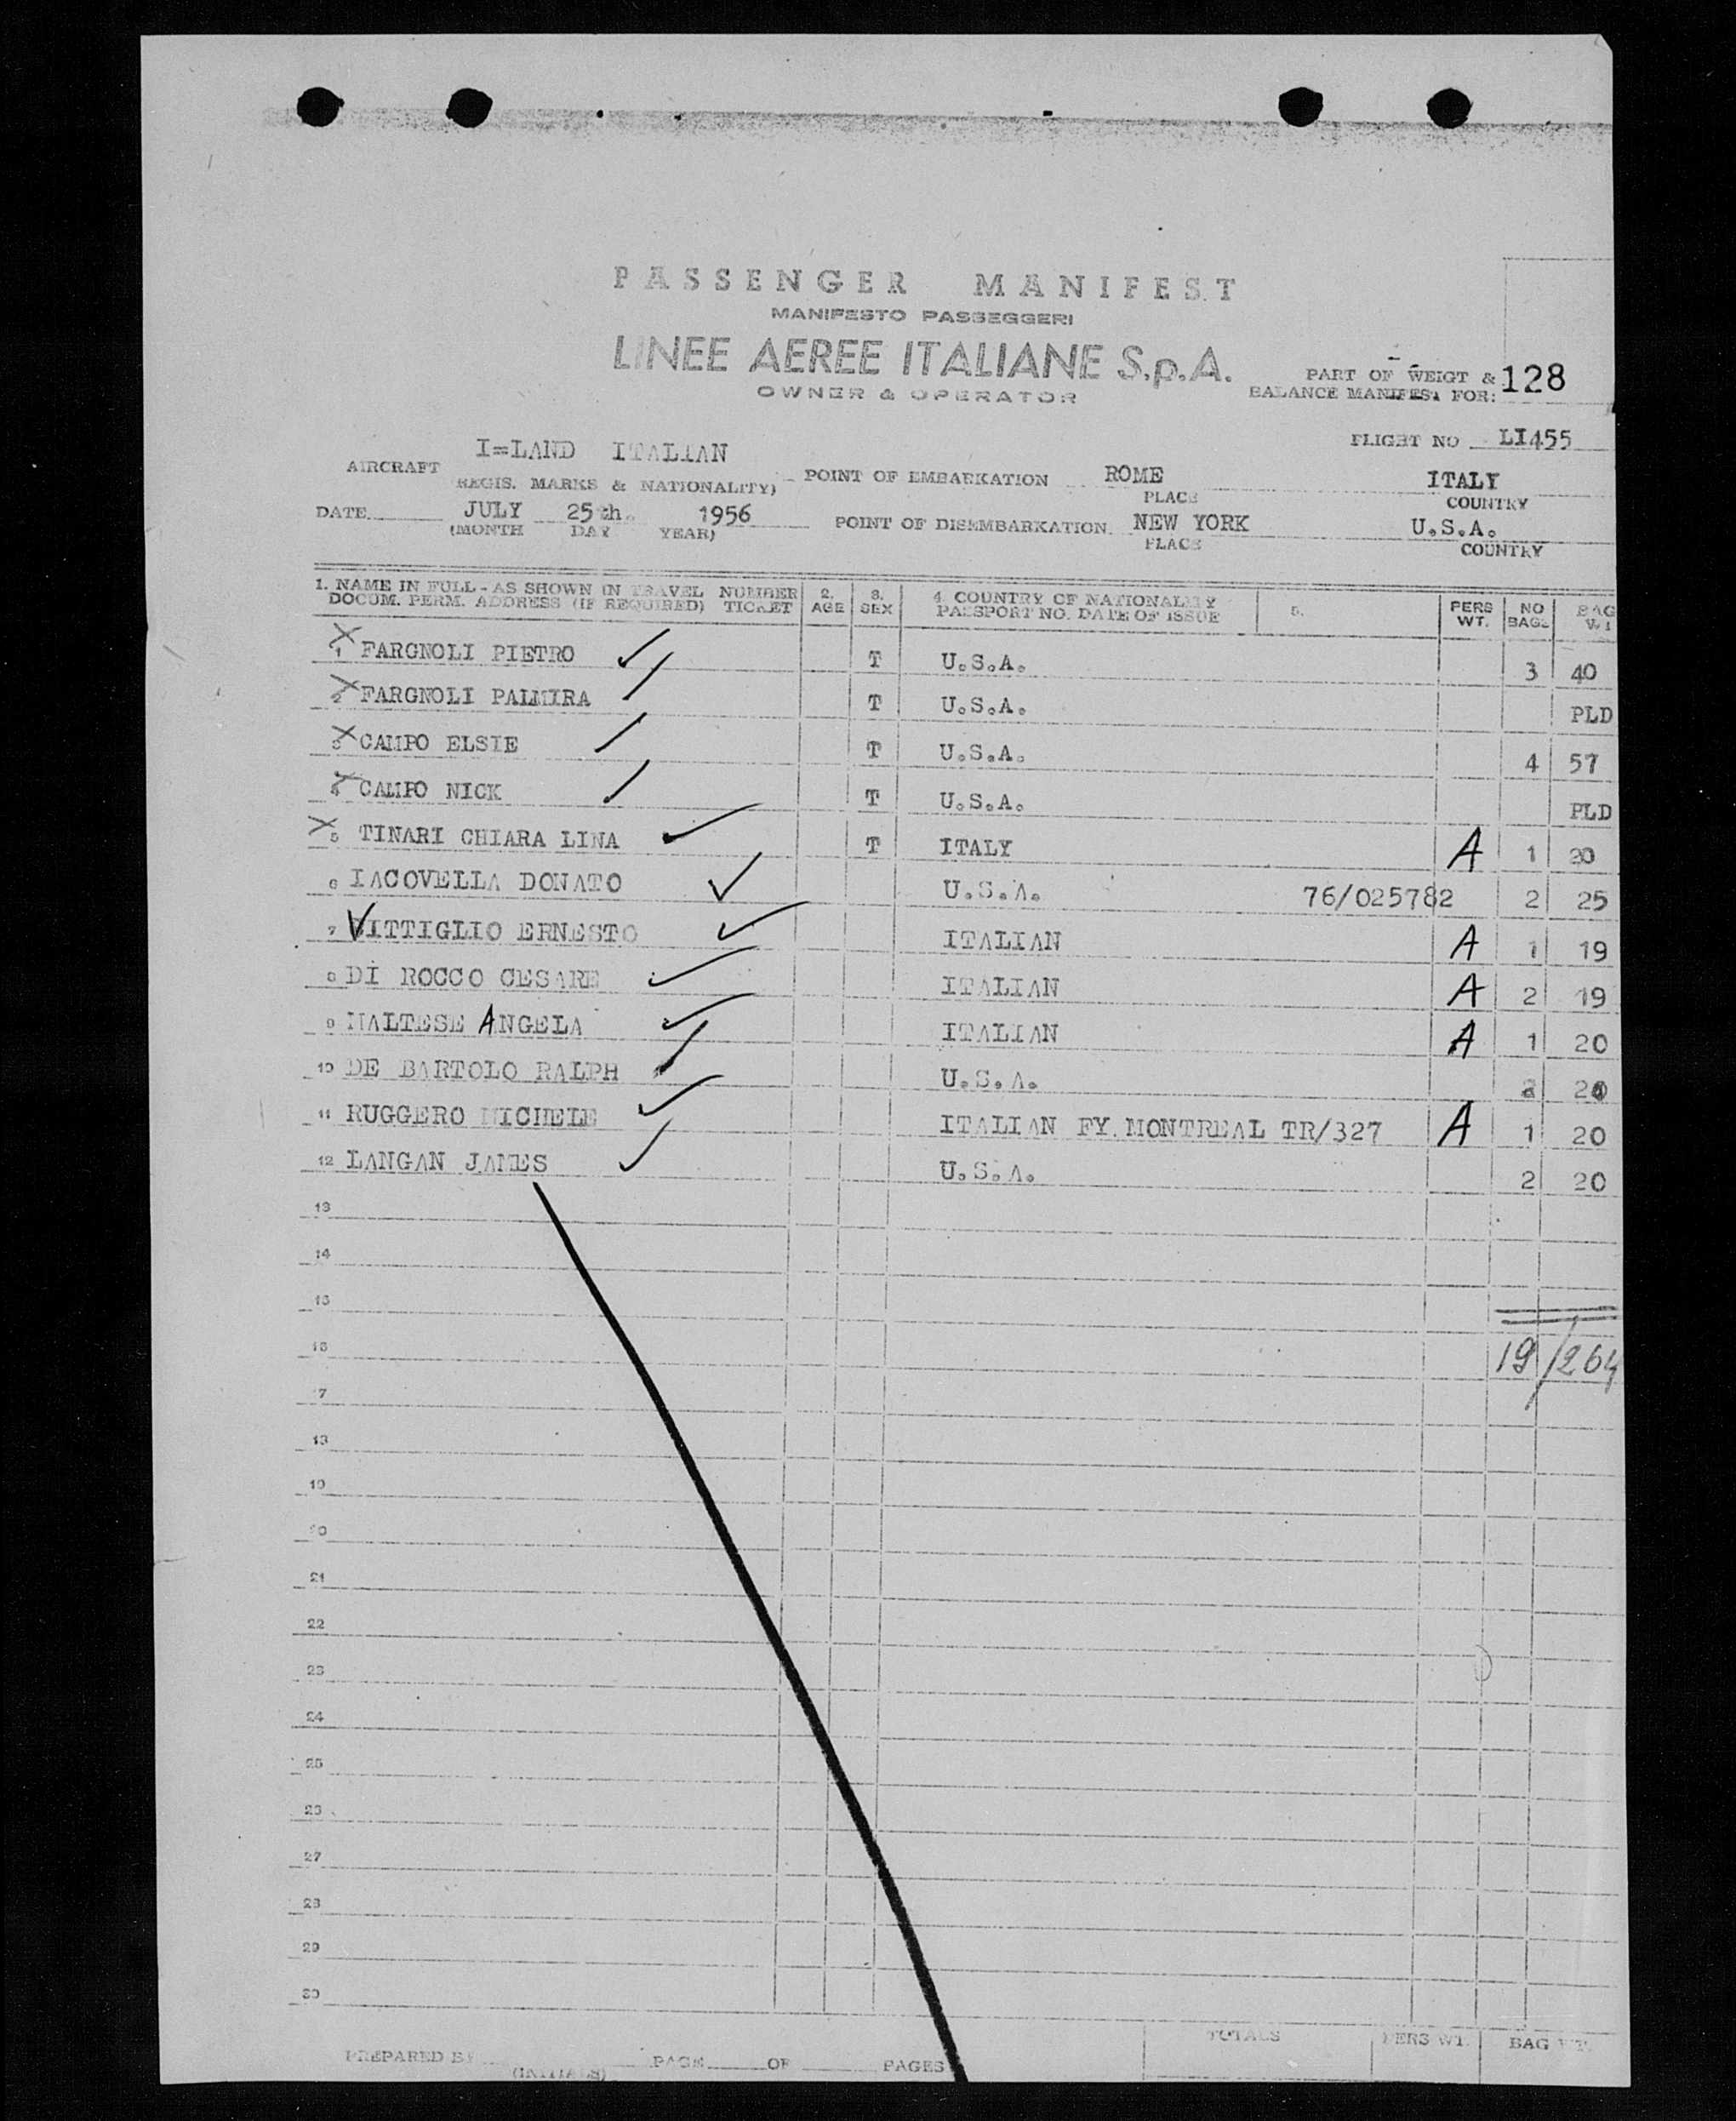 PASSENGER MANIFEST
MANIFESTO PASSEGGERI
LINEE AEREE ITALIANE S.p.A.
OWNER & OPERATOR
PART OF WEIGT &
BALANCE MANIFEST FOR: 128
FLIGHT NO LI455
AIRCRAFT I=LAND ITALIAN
REGIS. MARKS & NATIONALITY)
POINT OF EMBARKATION ROME ITALY
PLACE COUNTRY
DATE JULY 25th. 1956
(MONTH DAY YEAR)
POINT OF DISEMBARKATION. NEW YORK U.S.A.
PLACE COUNTRY
1. NAME IN FULL - AS SHOWN IN TRAVEL NUMBER 2. 3. 4. COUNTRY OF NATIONALITY 5. PERS NO BAG
DOCUM. PERM. ADDRESS (IF REQUIRED) TICKET AGE SEX PASSPORT NO. DATE OF ISSUE WT. BAGS WT
X 1 FARGNOLI PIETRO ✓ T U.S.A. 3 40
X 2 FARGNOLI PALMIRA T U.S.A. PLD
X 3 CAMPO ELSIE T U.S.A. 4 57
X 4 CAMPO NICK T U.S.A. PLD
X 5 TINARI CHIARA LINA ✓ T ITALY A 1 20
6 IACOVELLA DONATO ✓ U.S.A. 76/025782 2 25
7 VITTIGLIO ERNESTO ✓ ITALIAN A 1 19
8 DI ROCCO CESARE ✓ ITALIAN A 2 19
9 MALTESE ANGELA ✓ ITALIAN A 1 20
10 DE BARTOLO RALPH ✓ U.S.A. 2
11 RUGGERO MICHELE ✓ ITALIAN FY. MONTREAL TR/327 A 1 20
12 LANGAN JAMES ✓ U.S.A. 2 20
13
14
15
16 19/264
17
18
19
20
21
22
23
24
25
26
27
28
29
30
TOTALS PERS WT. BAG WT.
PREPARED BY PAGE OF PAGES
(INITIALS)